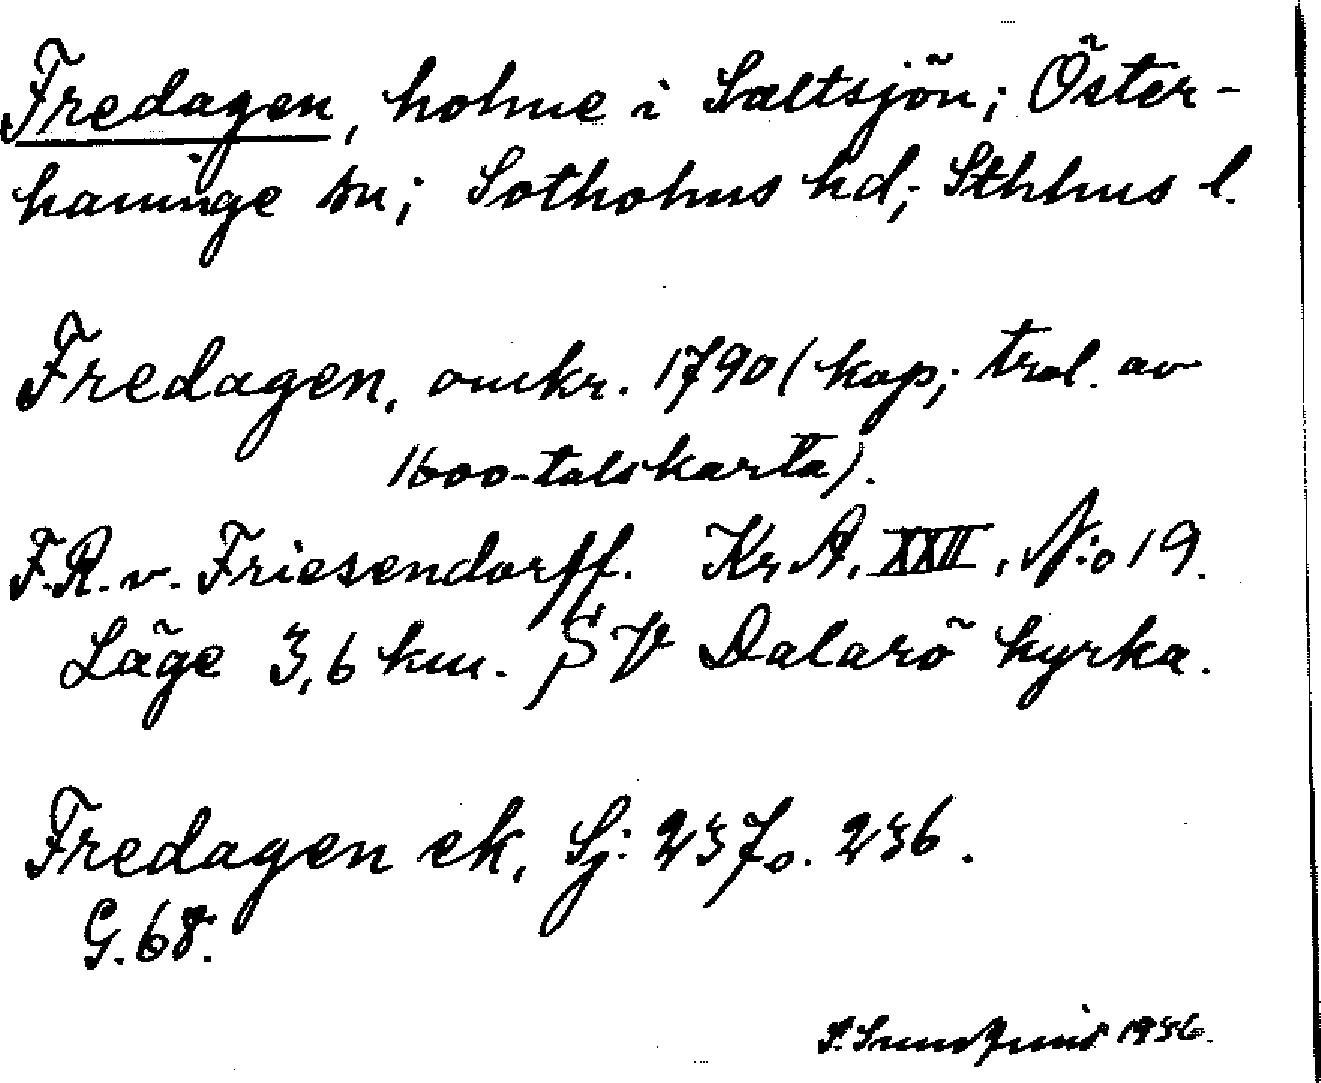 Fredagen, holme i Saltsjön; Öster-
haninge sn; Sotholms hd; Sthlms l.
Fredagen, omkr. 1790 (kop; trol. av
1600-talskarta).
F.R. v. Friesendorff. Kr A. XXII, N:o 19.
Läge 3,6 km. SV Dalarö kyrka.
Fredagen ek, Sj: 237 o. 236.
G.68.
1936.